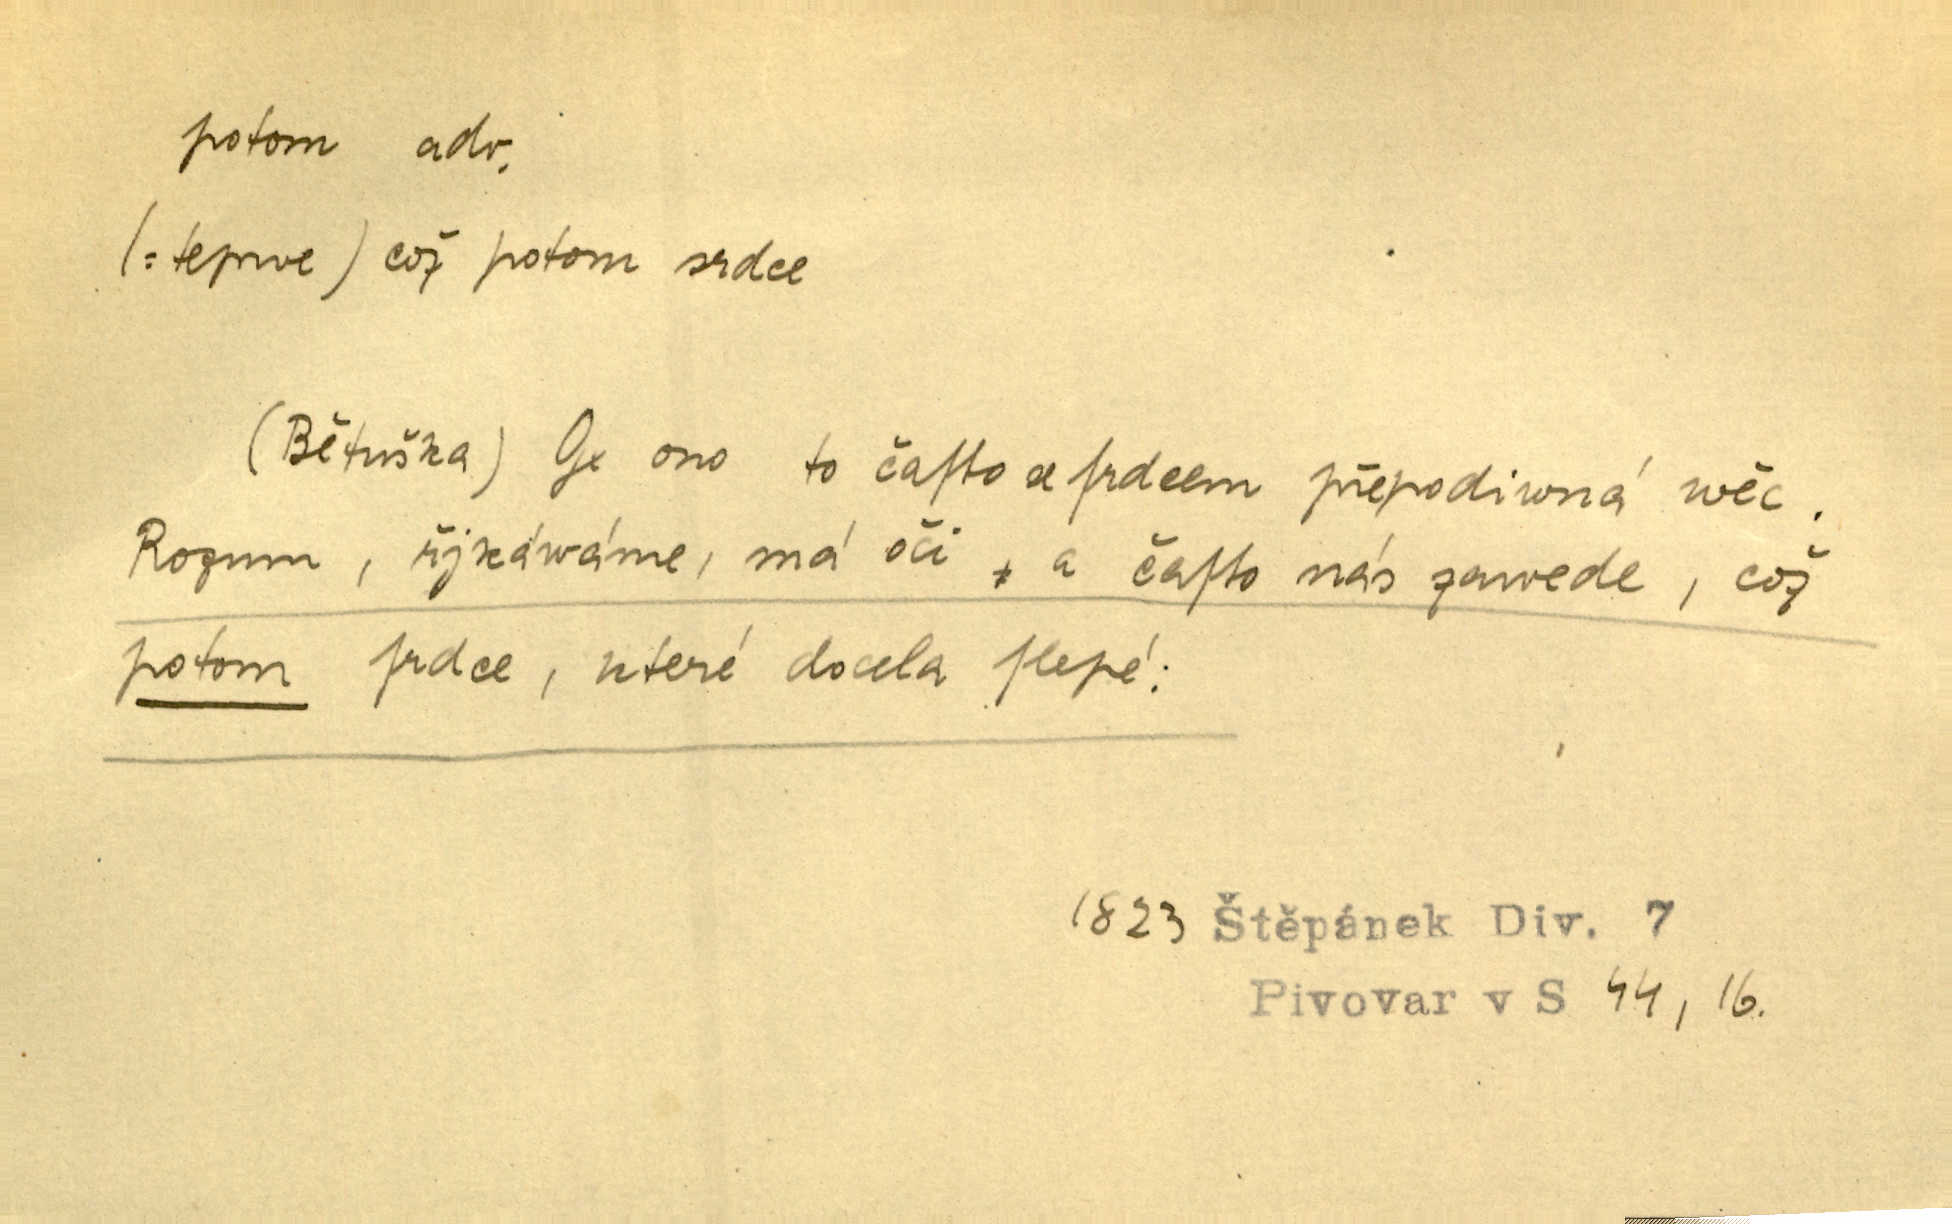 potom adv.
(=teprve) což potom srdce
(Bětuška) Ge ono to čaſto ſe ſrdcem přepodiwná wěc.
Rozum, řjkáwáme, má oči, a čaſto nás zawede, což
potom ſrdce, které docela ſlepé:
1823 Štěpánek Div. 7
Pivovar v S 44, 16.